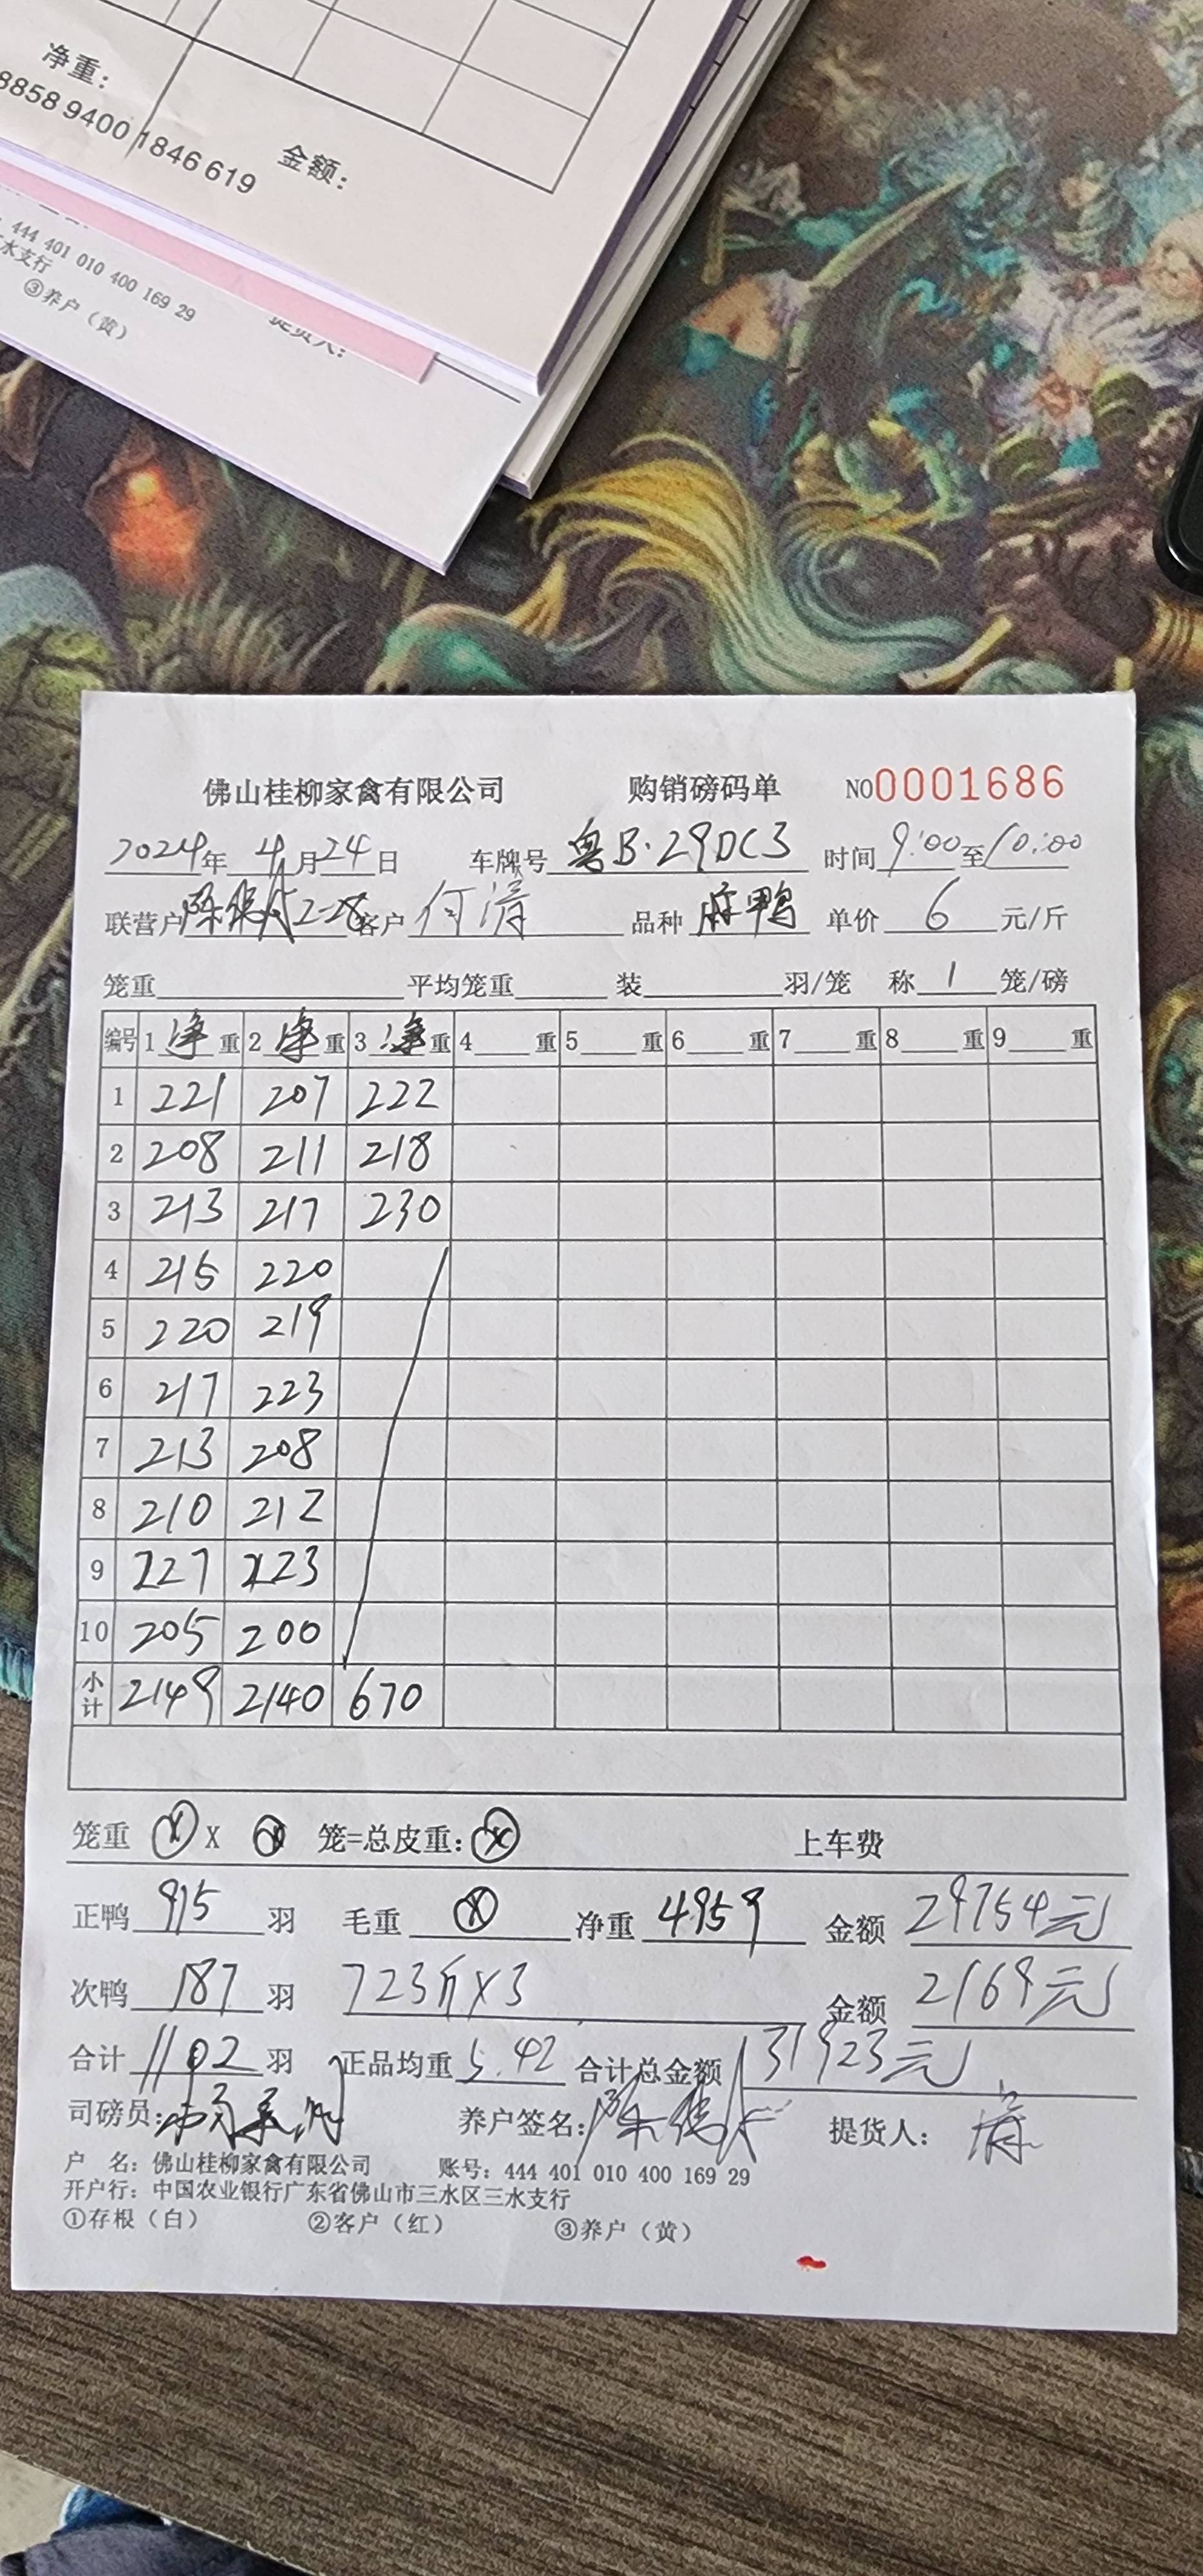 净重:
8858 9400 1846 619
金额:
444 401 010 400 169 29
水支行
③养户（黄）
提货人:
佛山桂柳家禽有限公司 购销磅码单 NO0001686
2024年4月24日 车牌号 粤B·29DC3 时间 9:00至10:00
联营户 2-28 客户 何清 品种 麻鸭 单价 6 元/斤
笼重 平均笼重 装 羽/笼 称 1 笼/磅
编号 1 净 重 2 净 重 3 净 重 4 重 5 重 6 重 7 重 8 重 9 重
1 221 207 222
2 208 211 218
3 213 217 230
4 215 220
5 220 219
6 217 223
7 213 208
8 210 212
9 227 223
10 205 200
小计 2149 2140 670
笼重 X 笼=总皮重: 上车费
正鸭 915 羽 毛重 净重 4959 金额 29754元
次鸭 187 羽 723斤X3 金额 2169元
合计 1102 羽 正品均重 5.42 合计总金额 31923元
司磅员: 养户签名: 提货人:
户 名: 佛山桂柳家禽有限公司 账号: 444 401 010 400 169 29
开户行: 中国农业银行广东省佛山市三水区三水支行
①存根（白） ②客户（红） ③养户（黄）